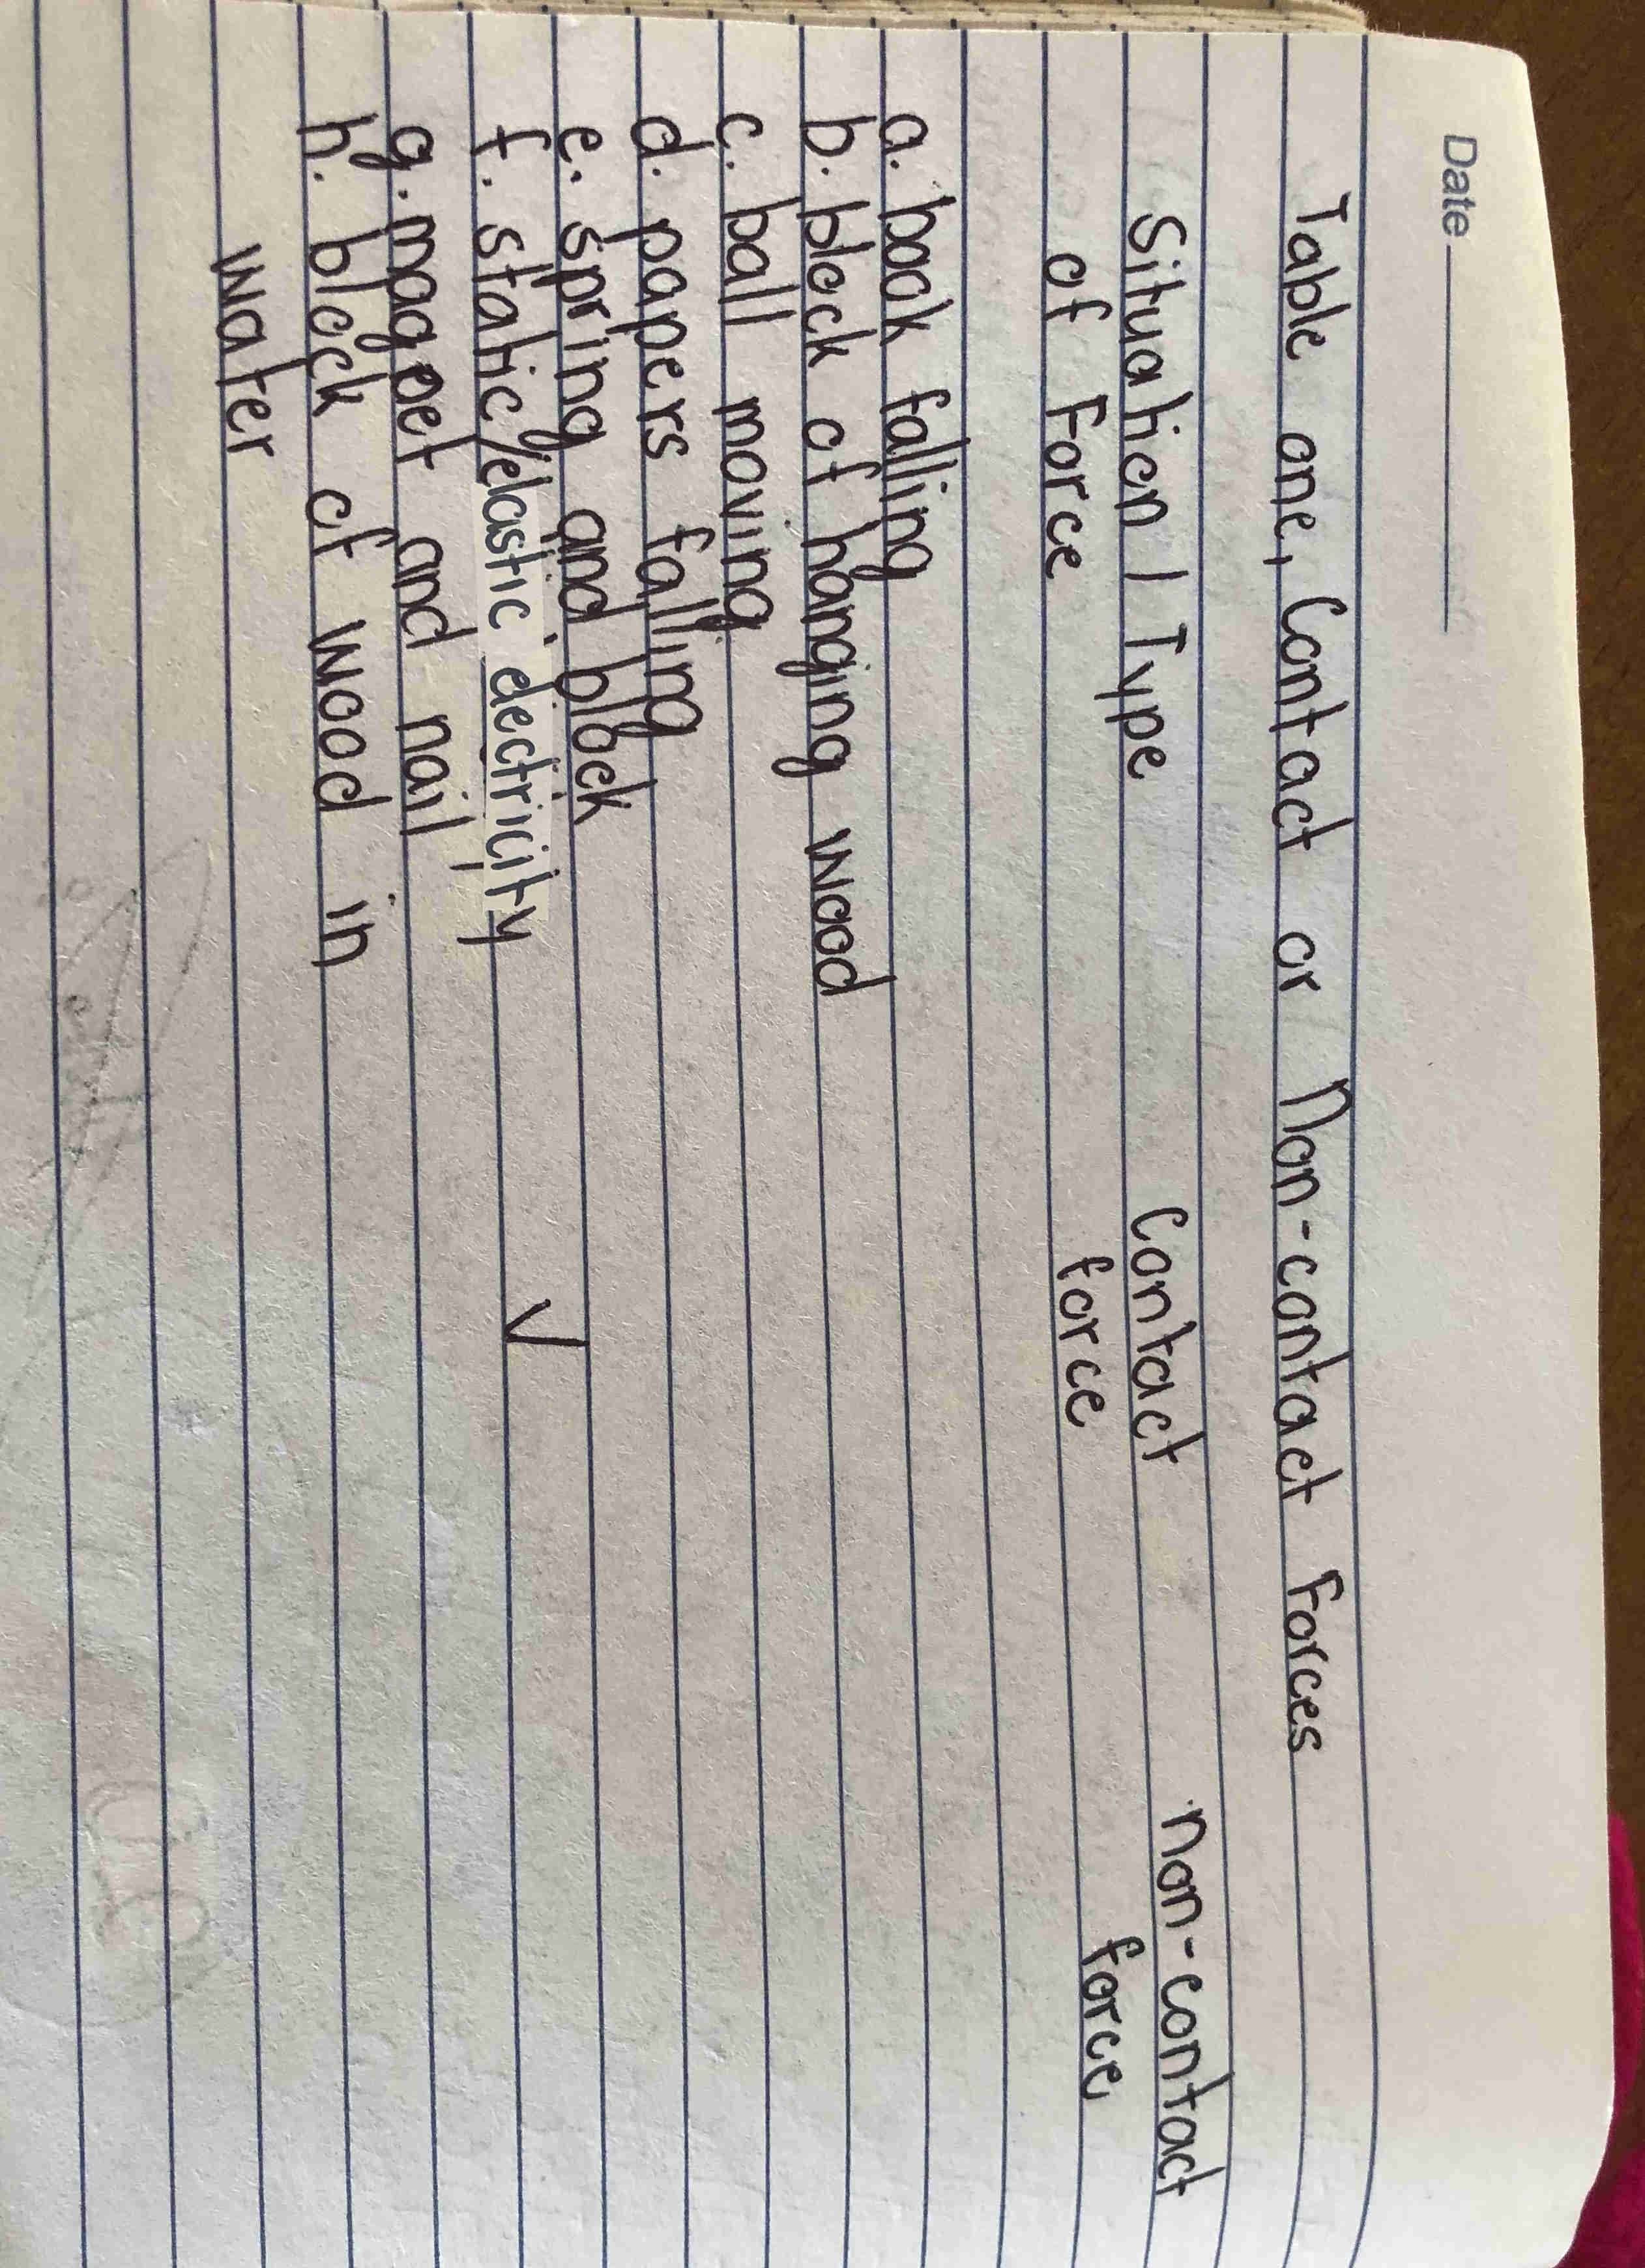 Date
Table one, Contact or Non-contact Forces
Situation / Type Contact non-contact
of Force force force
a. book falling
b. block of hanging wood
c. ball moving
d. papers falling
e. spring and block
f. static/elastic electricity ✓
g. magnet and nail
h. block of wood in
water